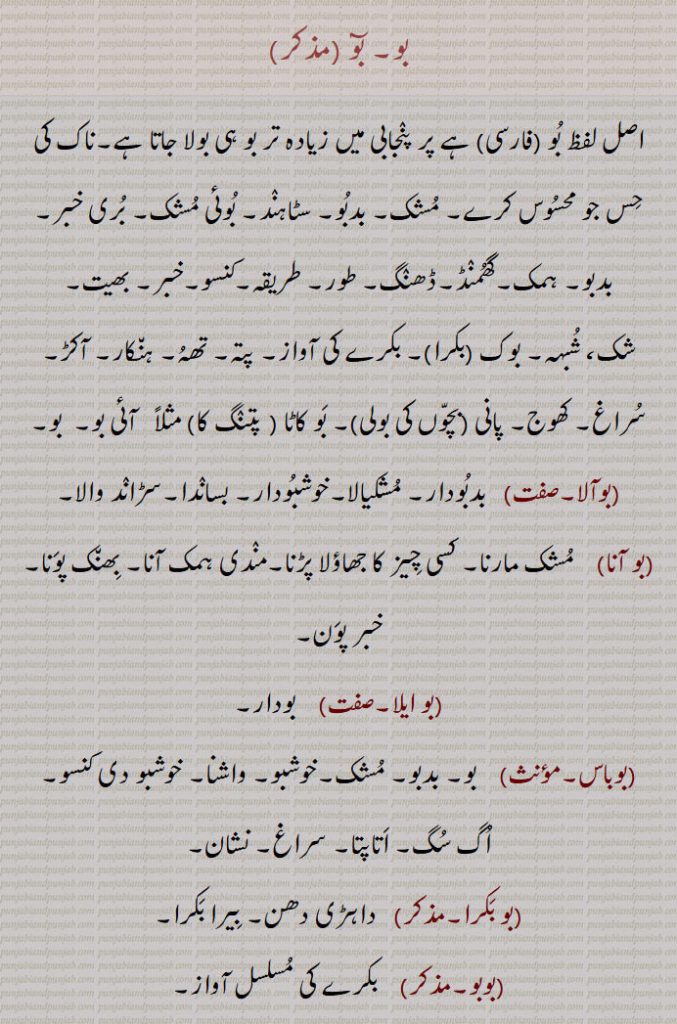 بو۔ بوٓ (مذکر)
اصل لفظ بُو (فارسی) ہے پر پنجابی میں زیادہ تر بو ہی بولا جاتا ہے۔ ناک کی
حِس جو محسُوس کرے۔ مُشک۔ بدبُو۔ سٹاہند۔ بُوئی مُشک۔ بُری خبر۔
بدبو۔ ہمک۔ گھُمنڈ۔ ڈھنگ۔ طور۔ طریقہ۔ کنسو۔ خبر۔ بھیت۔
شک، شُبہہ۔ بوک (بکرا)۔ بکرے کی آواز۔ پتہ۔ تھہُ۔ ہنّکار۔ آکڑ۔
سُراغ۔ کھوج۔ پانی (بچّوں کی بولی)۔ بَو کاٹا ( پتنگ کا) مثلاً آئی بو۔ بو۔
(بوآلا۔صفت) بدبُودار۔ مُشکیالا۔خوشبُودار۔ بساندا۔سڑاند والا۔
(بو آنا) مُشک مارنا۔ کسی چِیز کا جھاؤلا پڑنا۔مندی ہمک آنا۔ بِھنّک پوَنا۔
خبر پوَن۔
(بو ایلا۔صفت) بودار۔
(بوباس۔مؤنث) بو۔ بدبو۔ مُشک۔خوشبو۔ واشنا۔ خوشبو دی کنسو۔
اُگ سُگ۔ اَتاپتا۔ سراغ۔ نشان۔
(بو بَکرا۔مذکر) داہڑی دھن۔ بِیرا بَکرا۔
(بوبو۔مذکر) بکرے کی مُسلسل آواز۔